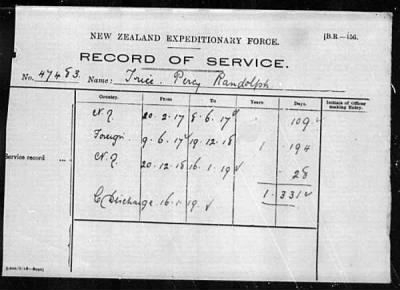 NEW ZEALAND EXPEDITIONARY FORCE. [B.R.—156.
RECORD OF SERVICE.
No. 47483. Name: Trice. Percy Randolph
Country. From To Years. Days. Initials of Officer making Entry.
N.Z. 20.2.17 8.6.17 109
Foreign 9.6.17 19.12.18 1 194
Service record N.Z. 20.12.18 16.1.19 28
1. 331
Discharge 16.1.19.